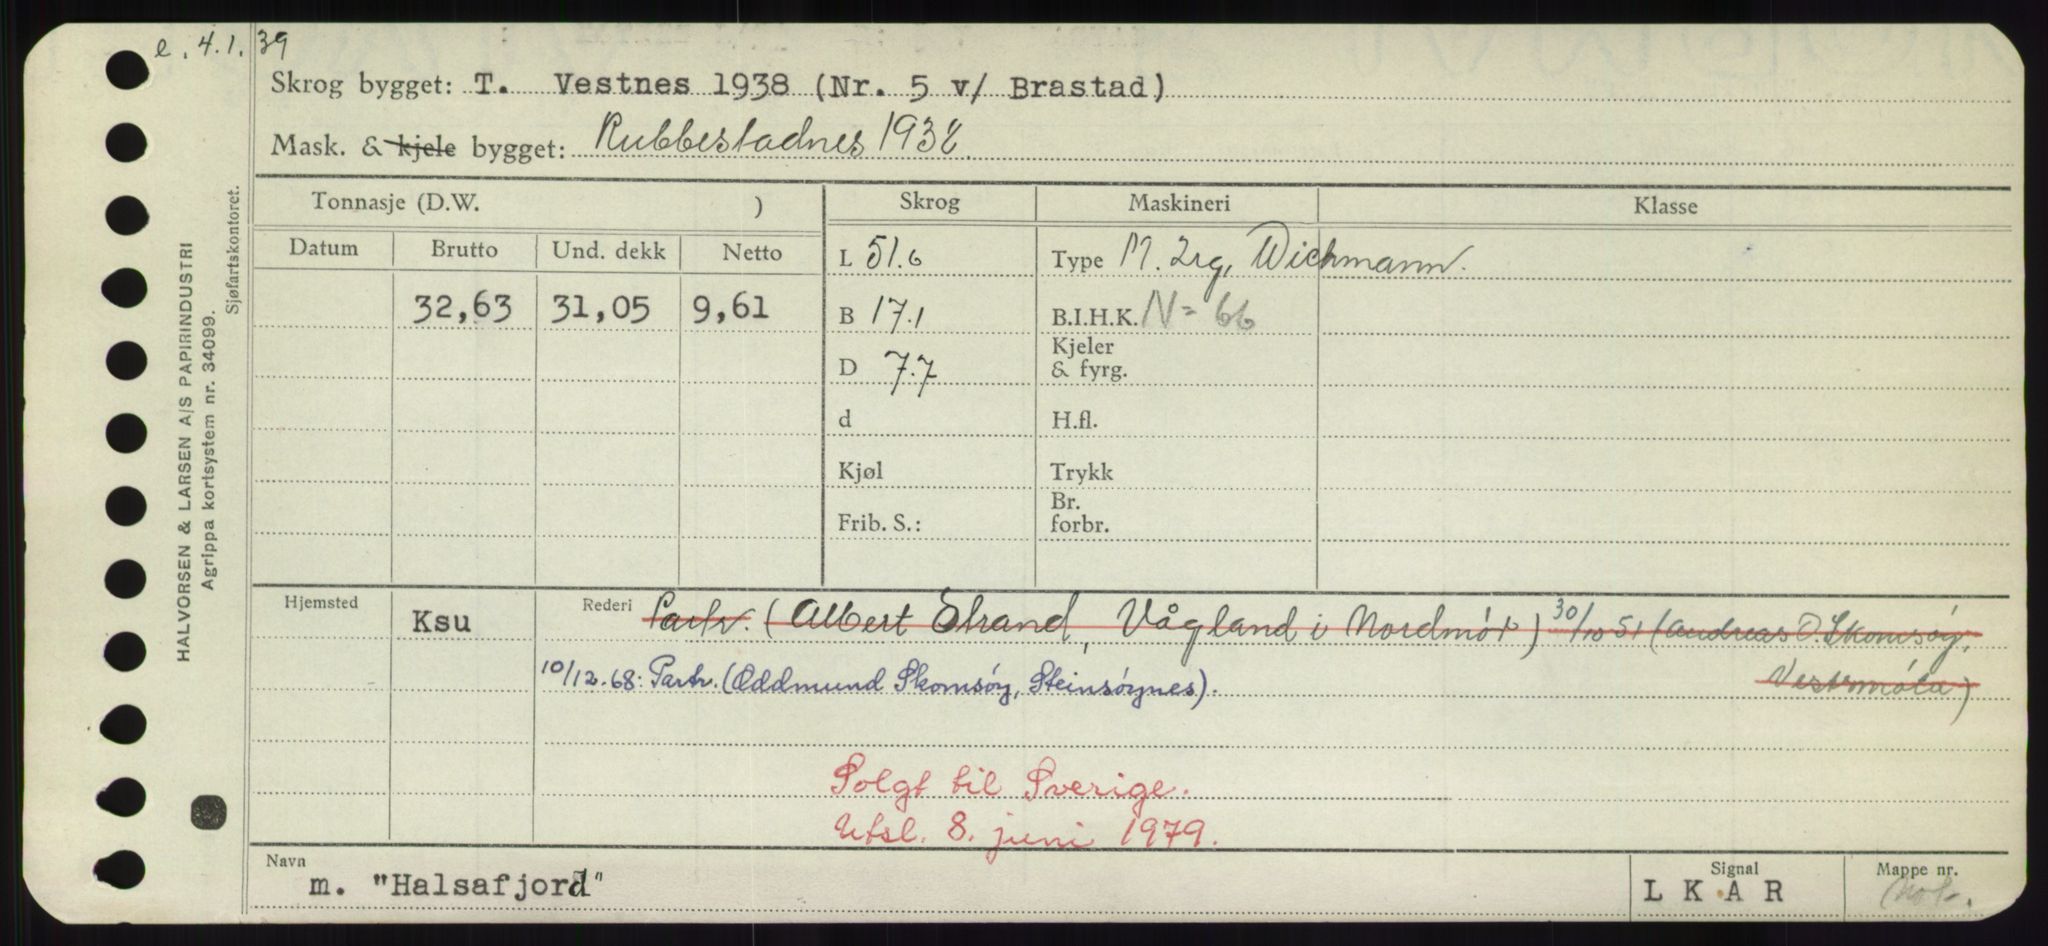 e. 4.1.39
Skrog bygget: T. Vestnes 1938 (Nr. 5 v/ Brastad)
Mask. & kjele bygget: Rubbestadnes 1938.
Tonnasje (D.W. )
Skrog
Maskineri
Klasse
Datum
Brutto
Und. dekk
Netto
L 51.6
Type M. 2rg, Wichmann.
32,63
31,05
9,61
B 17.1
B.I.H.K. N= 66
D 7.7
Kjeler
& fyrg.
d
H.fl.
Kjøl
Trykk
Frib. S.:
Br.
forbr.
Hjemsted
Ksu
Rederi
Partr. (Albert Strand, Vågland i Nordmør) 30/10 51 (Andreas O. Skomsøy,
Vestsmøla)
10/12.68: Partr. (Oddmund Skomsøy, Steinsøynes).
Solgt til Sverige.
Utsl. 8. juni 1979.
Navn
m. "Halsafjord"
Signal
L K A R
Mappe nr.
HALVORSEN & LARSEN A/S PAPIRINDUSTRI
Agrippa kortsystem nr. 34099.
Sjøfartskontoret.